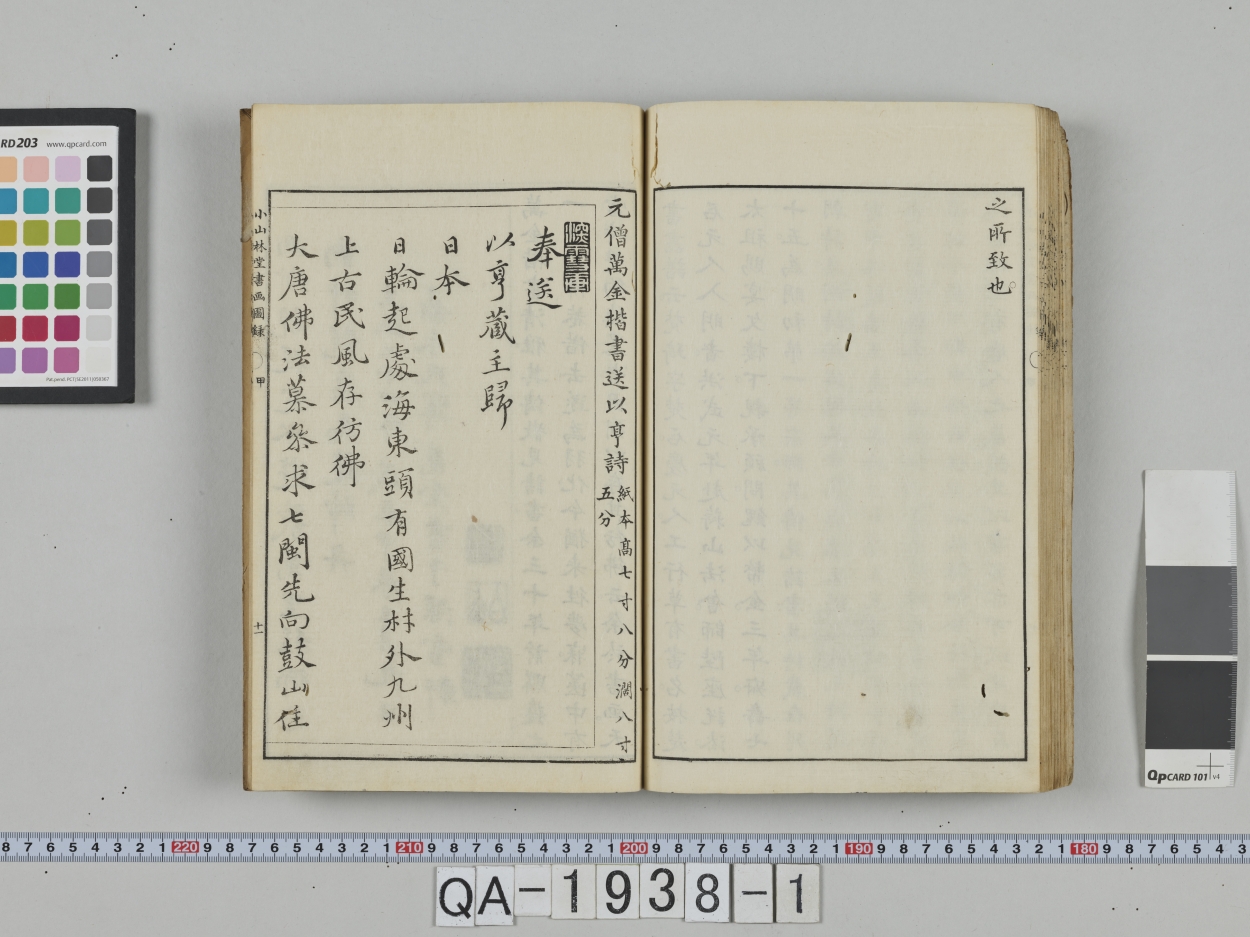 之所致也
元僧萬金揩書送以亨詩 紙本高七寸八分濶八寸
五分
奉送
以亨藏主歸
日本
日輪起處海東頭有國生材外九州
上古民風存彷彿
大唐佛法慕叅求七閩先向鼓山住
小山林堂書画圖録 甲 十一
RD203 www.qpcard.com
QpCARD 101 v4
8 7 6 5 4 3 2 1 220 9 8 7 6 5 4 3 2 1 210 9 8 7 6 5 4 3 2 1 200 9 8 7 6 5 4 3 2 1 190 9 8 7 6 5 4 3 2 1 180 9 8 7 6 5 4 3
QA-1938-1